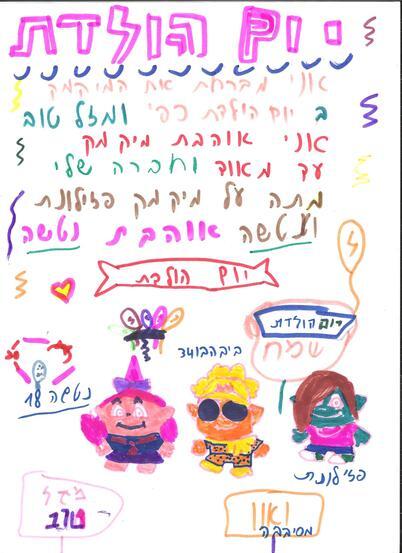 יום הולדת
אוני מברחת את המיקמק
ב יום הולדת כפי ומזל טוב
אוני אוהבת מיקמק
עד מאוד וחברה שלי
מתה על מיקמק פזילונת
אוהבת נטשה
יום הולדת
יום הולדת
שמח
ביבהבו34
נטשה 18
פזילונת
מזל
טוב
וואו
מסיבקה